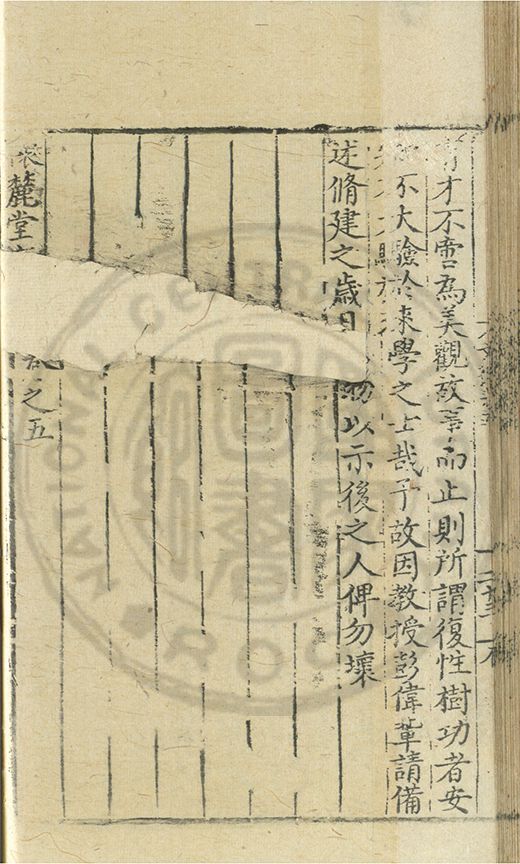 育才不啻為美觀故事而止則所謂復性樹功者安
不大驗於來學之士哉予故因教授彭偉輩請備
述脩建之歲月以示後之人俾勿壞
懷麓堂
之五